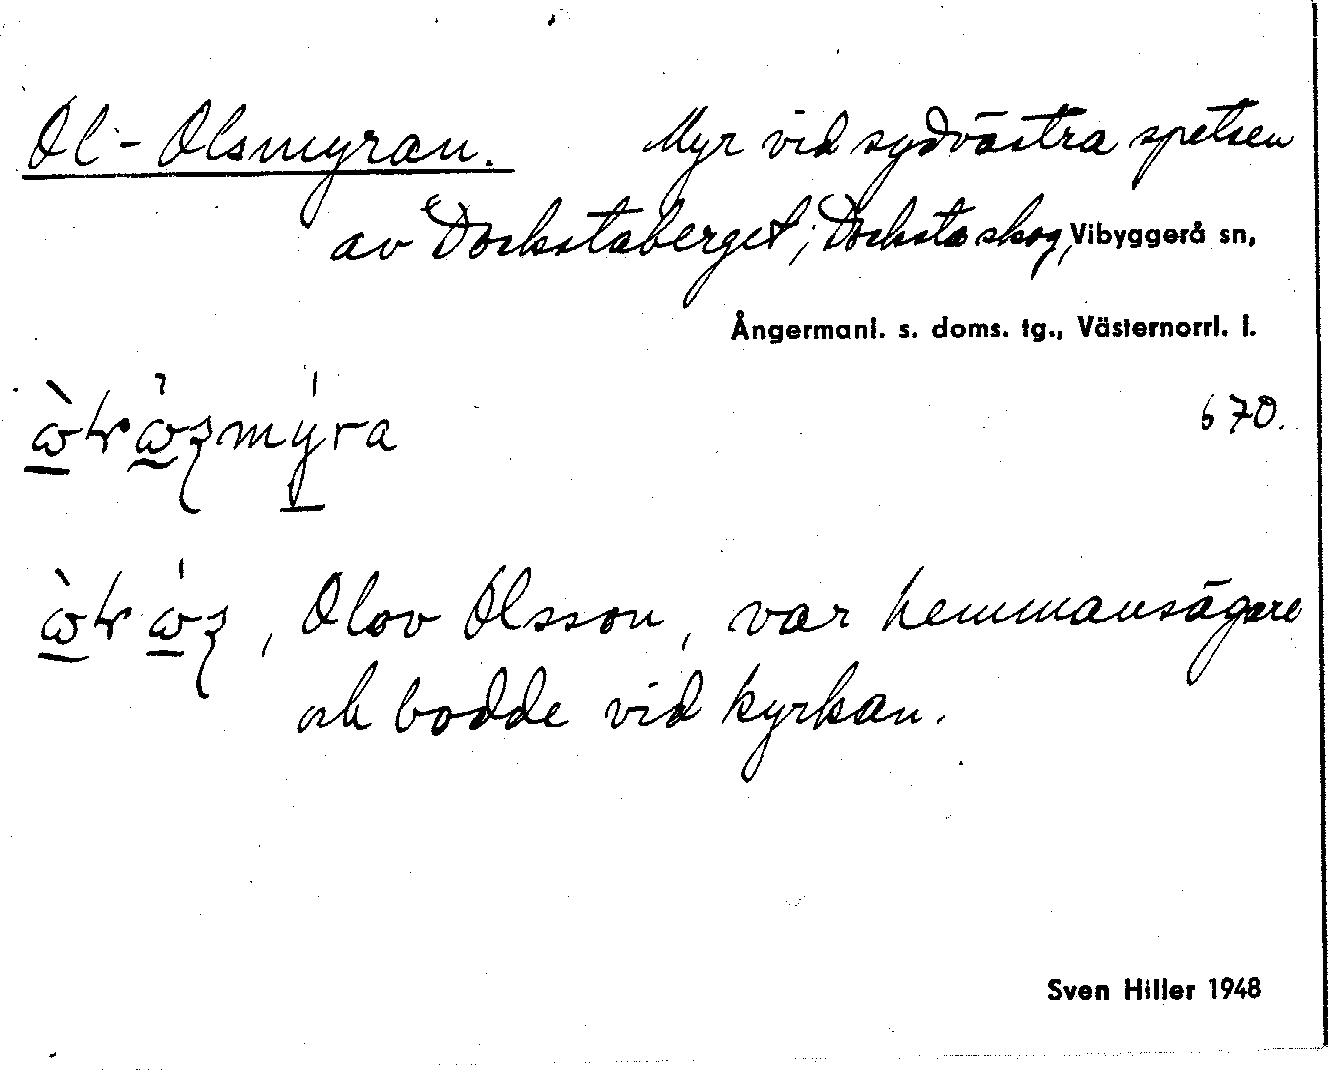 Ol-Olsmyran. Myr vid sydvästra spetsen
av Dockstaberget; Docksta skog, Vibyggerå sn,
Ångermanl. s. doms. tg., Västernorrl. l.
670.
, Olov Olsson, var hemmansägare
och bodde vid kyrkan.
Sven Hiller 1948